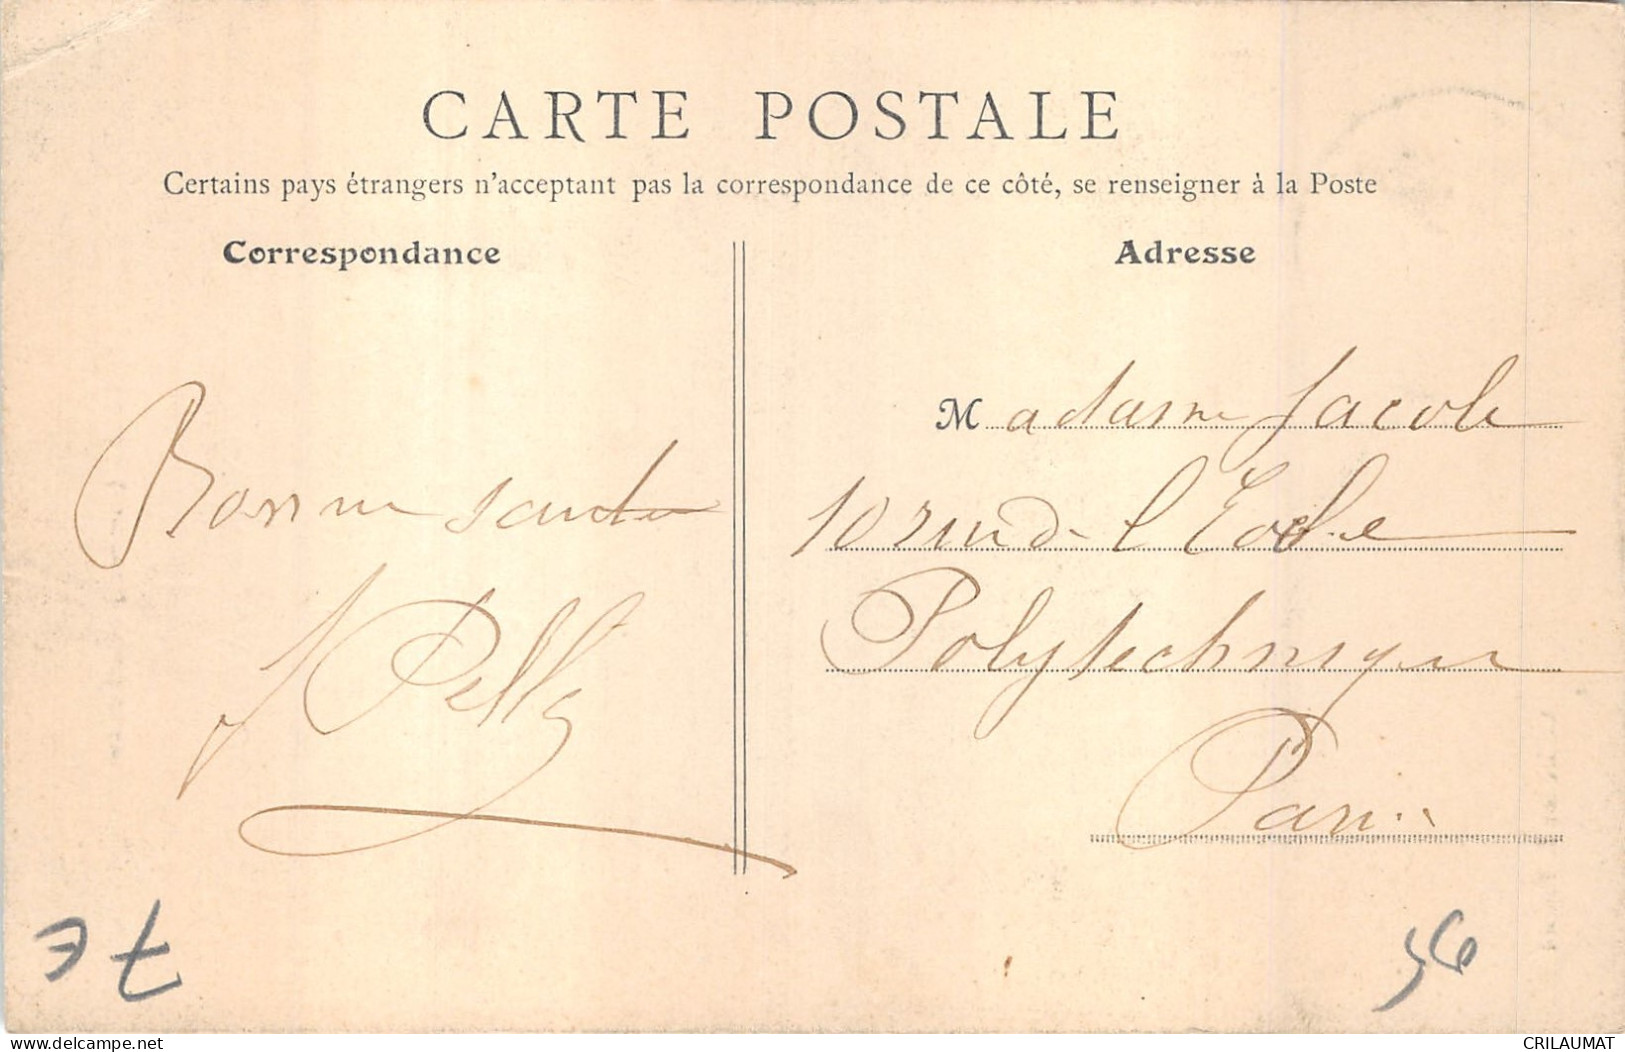 CARTE POSTALE
Certains pays étrangers n'acceptant pas la correspondance de ce côté, se renseigner à la Poste
Correspondance
Adresse
Madame Jacob
10 rue de l'Ecole
Polytechnique
Paris
Bonne sante
7E
56
7E, Itm
CRILAUMAT